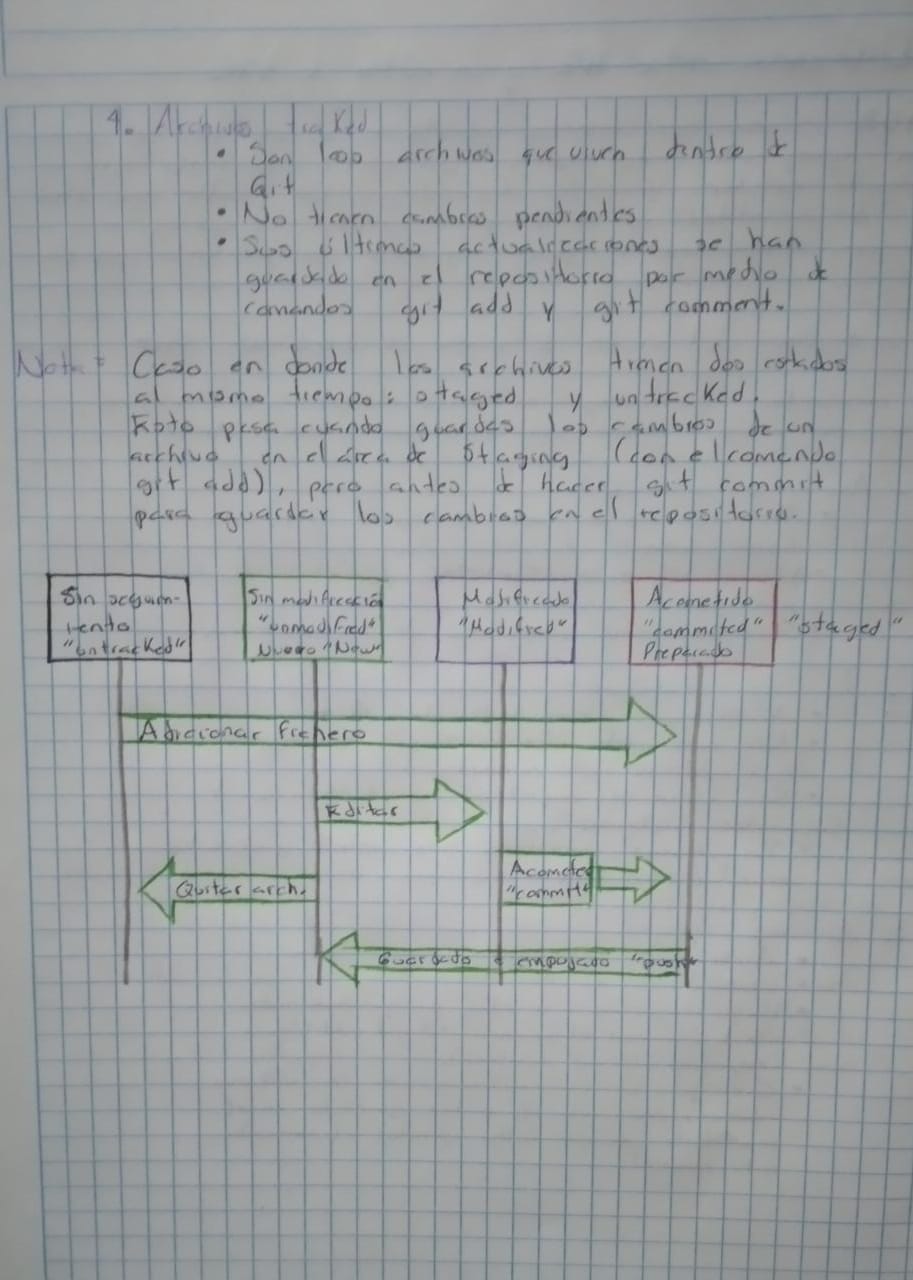 4. Archivos tracked
• Son los archivos que viven dentro de
Git
• No tienen cambios pendientes
• Sus últimas actualizaciones se han
guardado en el repositorio por medio de
comandos git add y git comment.
Nota: Caso en donde los archivos tienen dos estados
al mismo tiempo: staged y untracked.
Esto pasa cuando guardas los cambios de un
archivo en el área de Staging (con el comando
git add), pero antes de hacer git commit
para guardar los cambios en el repositorio.
Sin seguim-
iento
"untracked"
Sin modificación
"unmodified"
Nuevo "New"
Modificado
"Modified"
Acometido
"commited" "staged"
Preparado
Adicionar fichero
Editar
Quitar arch.
Acometer
"commit"
Guardado empujado "push"